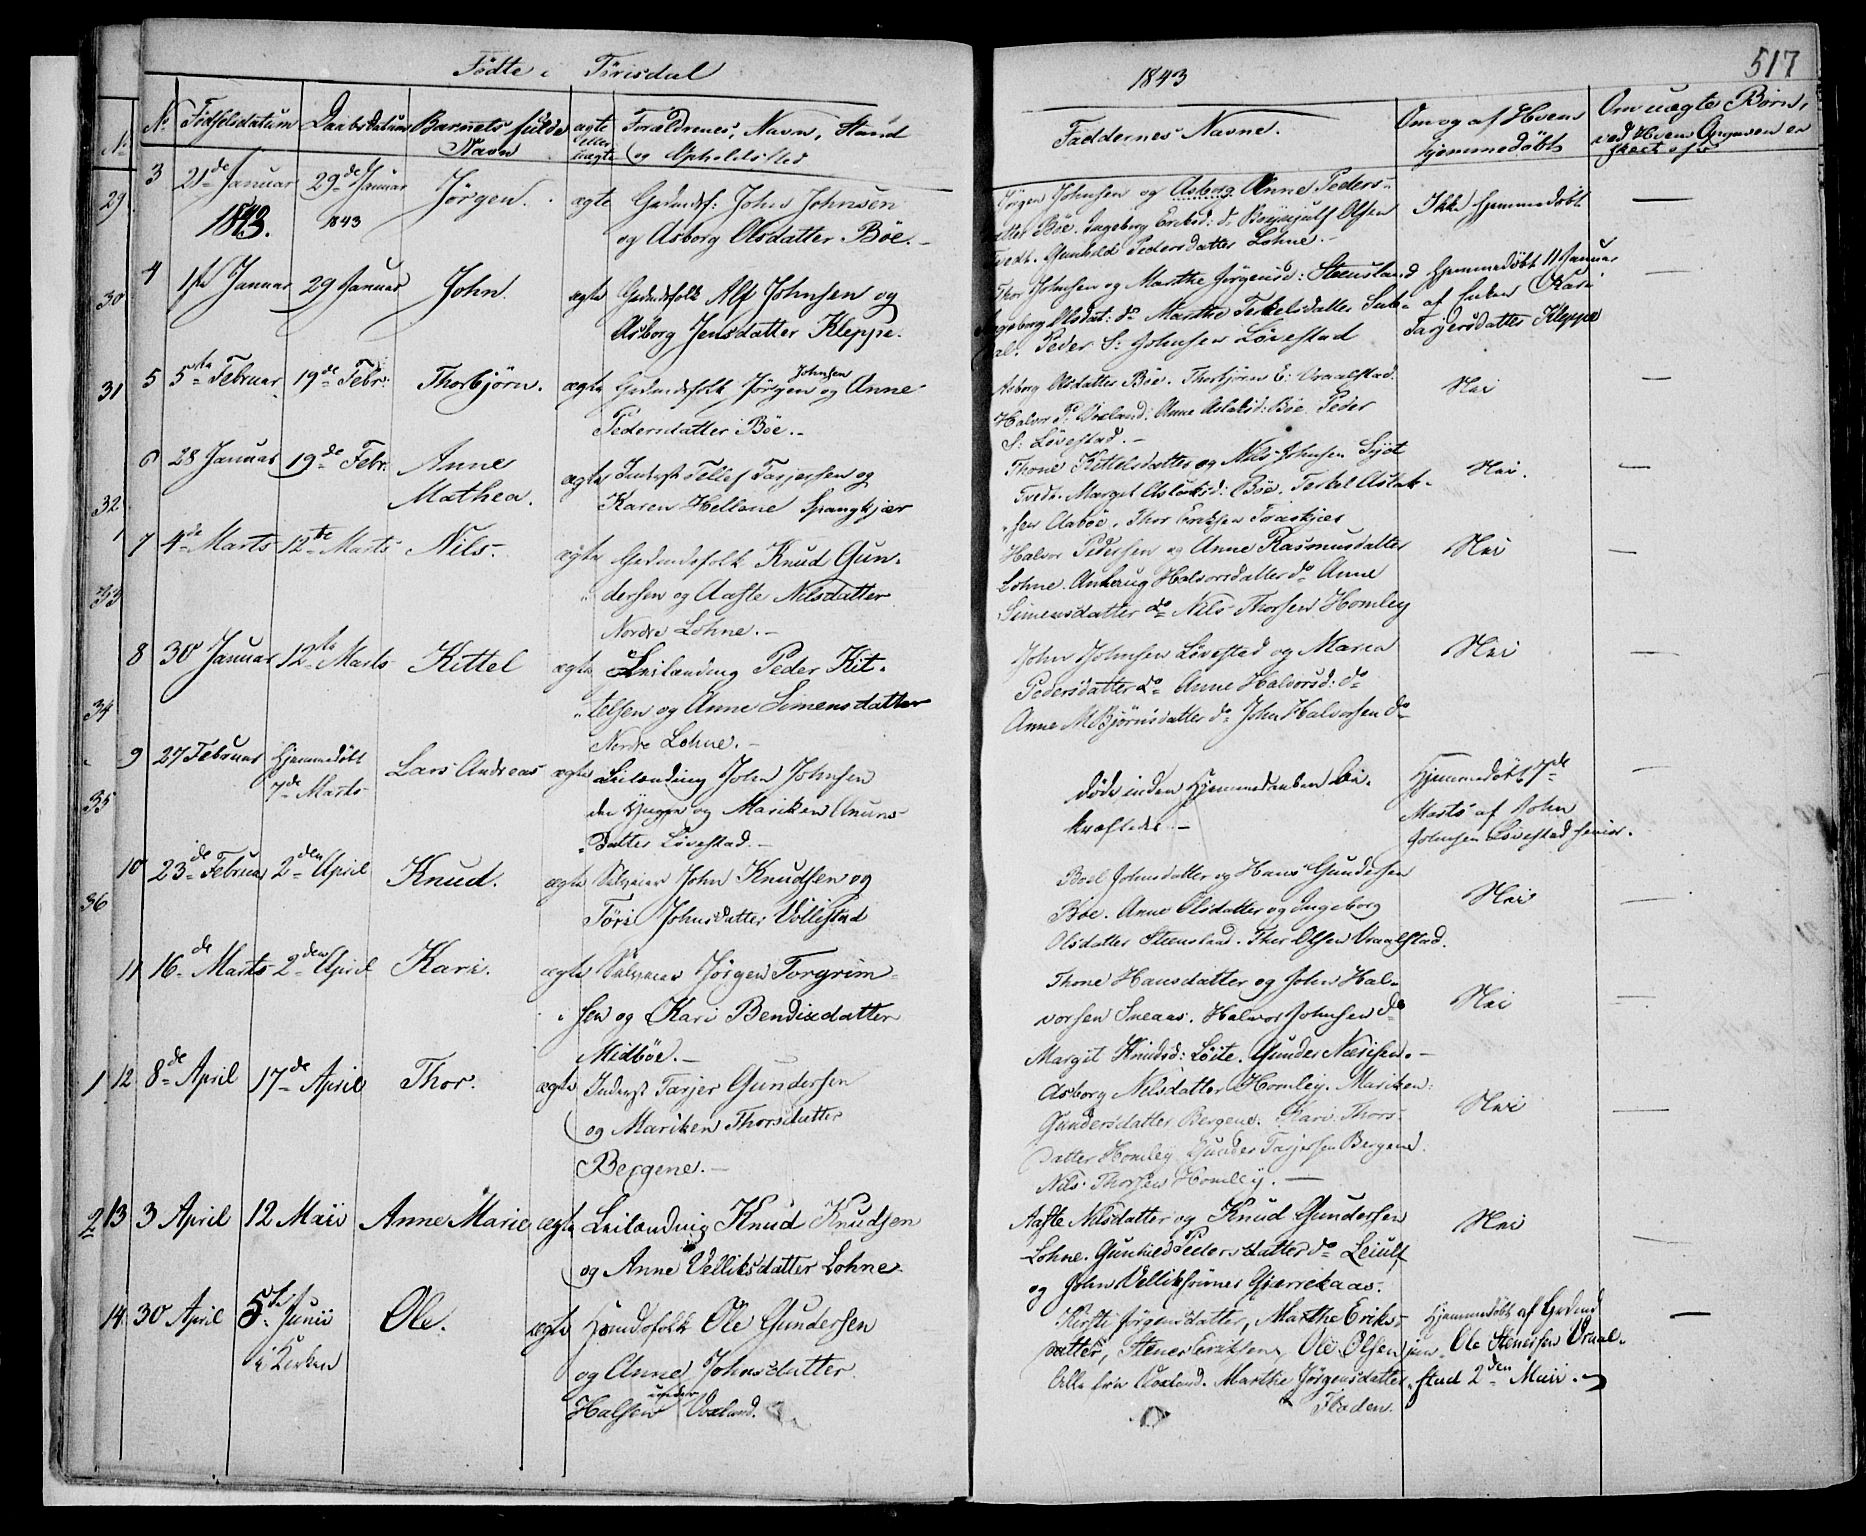 Födte i Törisdal
1843
517
No Födselsdatum Daabsdatum Barnets fulde Navn ægte eller uægte Forældrenes, Navn, Stand og Opholdssted
Faddernes Navne.
Om og af Hvem hjemmedöbt
Om uægte Börn, ved Hvem
3 21de Januar 1843. 29de Januar 1843 Jörgen. ægte Gaardsf: John Johnsen
og Asborg Olsdatter Böe.-
Jörgen Johnsen og Asborg Anne Peders-
datter Böe. Ingeborg Eriksd: do Olsen
Tvedt. Gunhild Pedersdatter Lohne.-
Ikke hjemmedöbt
4 1ste Januar 29 Januar John. ægte Gaardsfolk Alf Johnsen og
Asborg Jensdatter Kleppe.
Thor Johnsen og Marthe Jörgensd: Steensland
Ingeborg Olsdat: do Marthe Terkelsdatter
Peder S: Johnsen Lövestad
Hjemmedöbt 11 Januar
af Enken Kari
Tarjersdatter Kleppe
5 5te Februar 19de Febr. Thorbjörn. ægte Gaardsfolk Jörgen Johnsen og Anne
Pedersdatter Böe.-
Asborg Olsdatter Böe. Thorbjörn E: Vraalstad.
Halvor P: Voxland: Anne Aslaksd: Böe. Peder
S: Lövestad.-
Nei
6 28 Januar 19de Febr. Anne
Mathea. ægte Inderst Tellef Tarjersen og
Karen Hellene Spangkjær
Thone Kittelsdatter og Nils Johnsen
Tvedt. Margit Aslaksd: Böe. Terkel Aslak-
sen Aaböe. Thor Eriksen
Nei.
7 4de Marts 12te Marts Nils. ægte Gaardsfolk Knud Gun-
dersen og Aaste Nilsdatter
Nordre Lohne.-
Halvor Pedersen og Anne Rasmusdatter
Lohne. Halvorsdatter do Anne
Simensdatter do Nils Thorsen Homley
Nei
8 30 Januar 12te Marts Kittel ægte Leilænding Peder Kit-
telsen og Anne Simensdatter
Nordre Lohne.-
John Johnsen Lövestad og Maren
Pedersdatter do Anne Halvorsd: do
Anne M Björnsdatter do John Halvorsen do
Nei
9 27 Februar Hjemmedöbt
7de Marts Lars Andreas ægte Leilænding John Johnsen
den Yngre og Mariken Anuns-
datter Lövestad.-
döde inden Hjemmedaaben be-
kræftedes.-
Hjemmedöbt 7de
Marts af John
Johnsen Lövestad senior.
10 23de Februar 2den April Knud. ægte Selveier John Knudsen og
Töri Johnsdatter Völlestad
Boel Johnsdatter og Hans Gundersen
Böe. Anne Olsdatter og Ingeborg
Olsdatter Steensland. Thor Olsen Vraalstad.
Nei
11 16de Marts 2den April Kari. ægte Selveier Jörgen Torgrim-
sen og Kari Bendixdatter
Midböe.-
Thone Hansdatter og John Hal-
vorsen Sneaas. Halvor Johnsen do
Margit Knudsd: Löite. Gunder Næsisen.-
Nei
12 8de April 17de April Thor. ægte Inderst Tarjer Gundersen
og Mariken Thorsdatter
Bergene.-
Asborg Nilsdatter Homley. Mariken
Gundersdatter Bergene. Kari Thors-
datter Homley Gunder Tarjersen Bergene.
Nils Thorsen Homley.-
Nei
13 3 April 12 Maii Anne Marie ægte Leilænding Knud Knudsen
og Anne Velliksdatter Lohne.
Aaste Nilsdatter og Knud Gundersen
Lohne. Gunhild Pedersdatter do Leiulf
og John Gjerrekaas.
Nei
14. 30 April 5te Junii
i Kirken Ole. ægte Huusfolk Ole Gundersen
og Anne Johnsdatter.
Halsen under Voxland.
Kirsti Jörgensdatter, Marthe Eriks-
datter, Stener Eriksen, Ole Olsen
Alle fra Voxland. Marthe Jörgensdatter
Floden.
Hjemmedöbt af
Ole Stenersen Vraal-
stad 2den Maii.
29
30
31
32
33
34
35
36
1
2